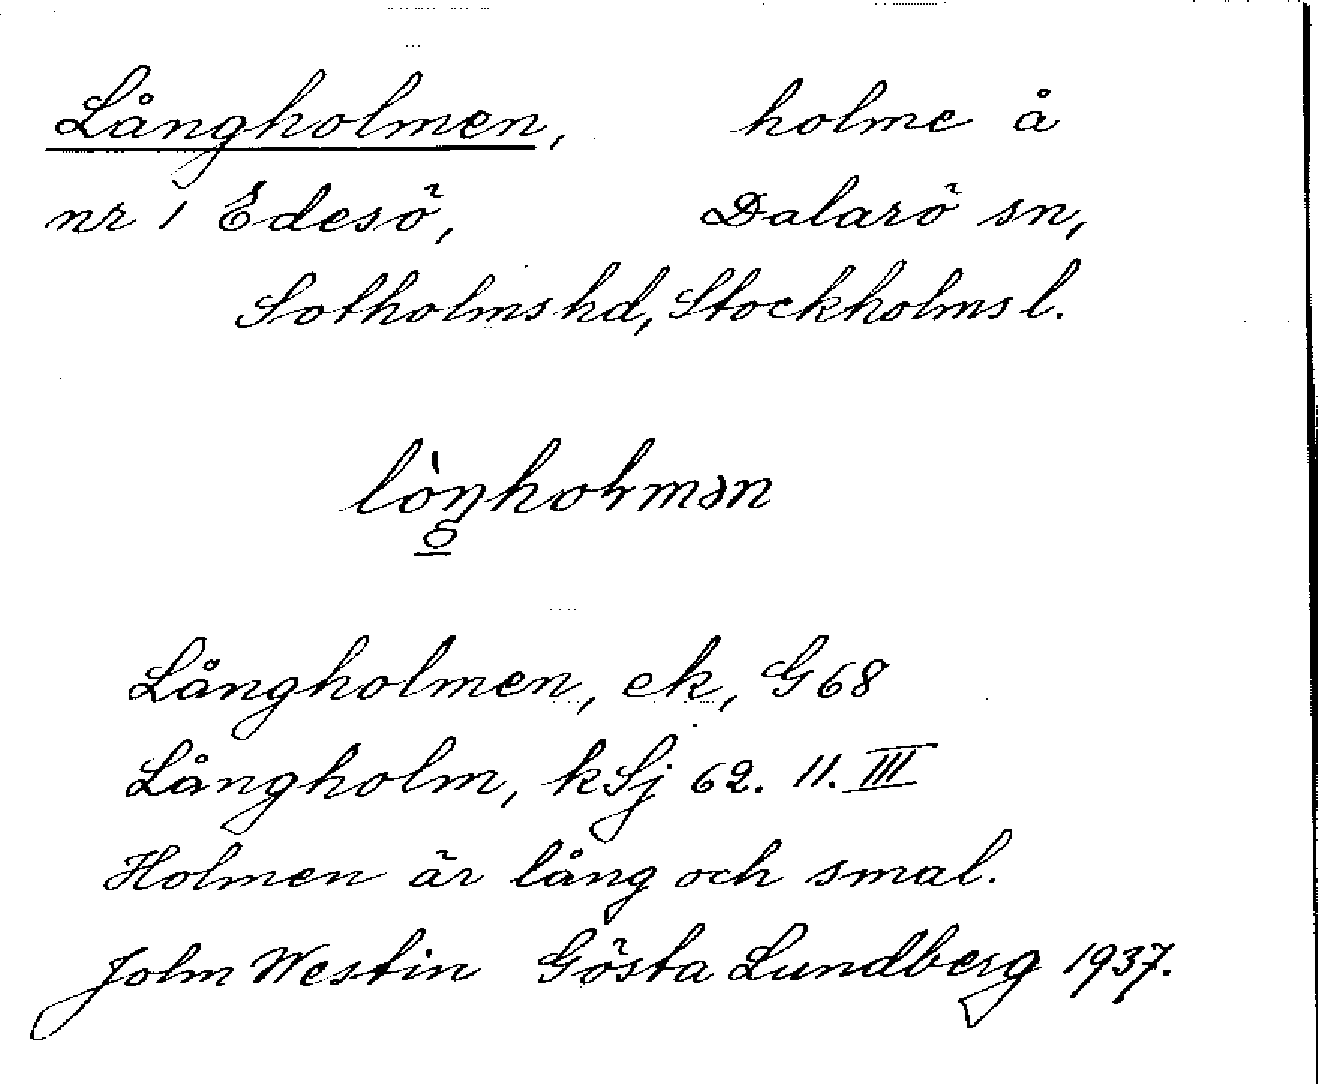 Långholmen, holme å
nr 1 Edesö, Dalarö sn,
Sotholms hd, Stockholms l.
lòŋholmən
Långholmen, ek, G 68
Långholm, kSj 62. 11. III
Holmen är lång och smal.
John Westin Gösta Lundberg 1937.